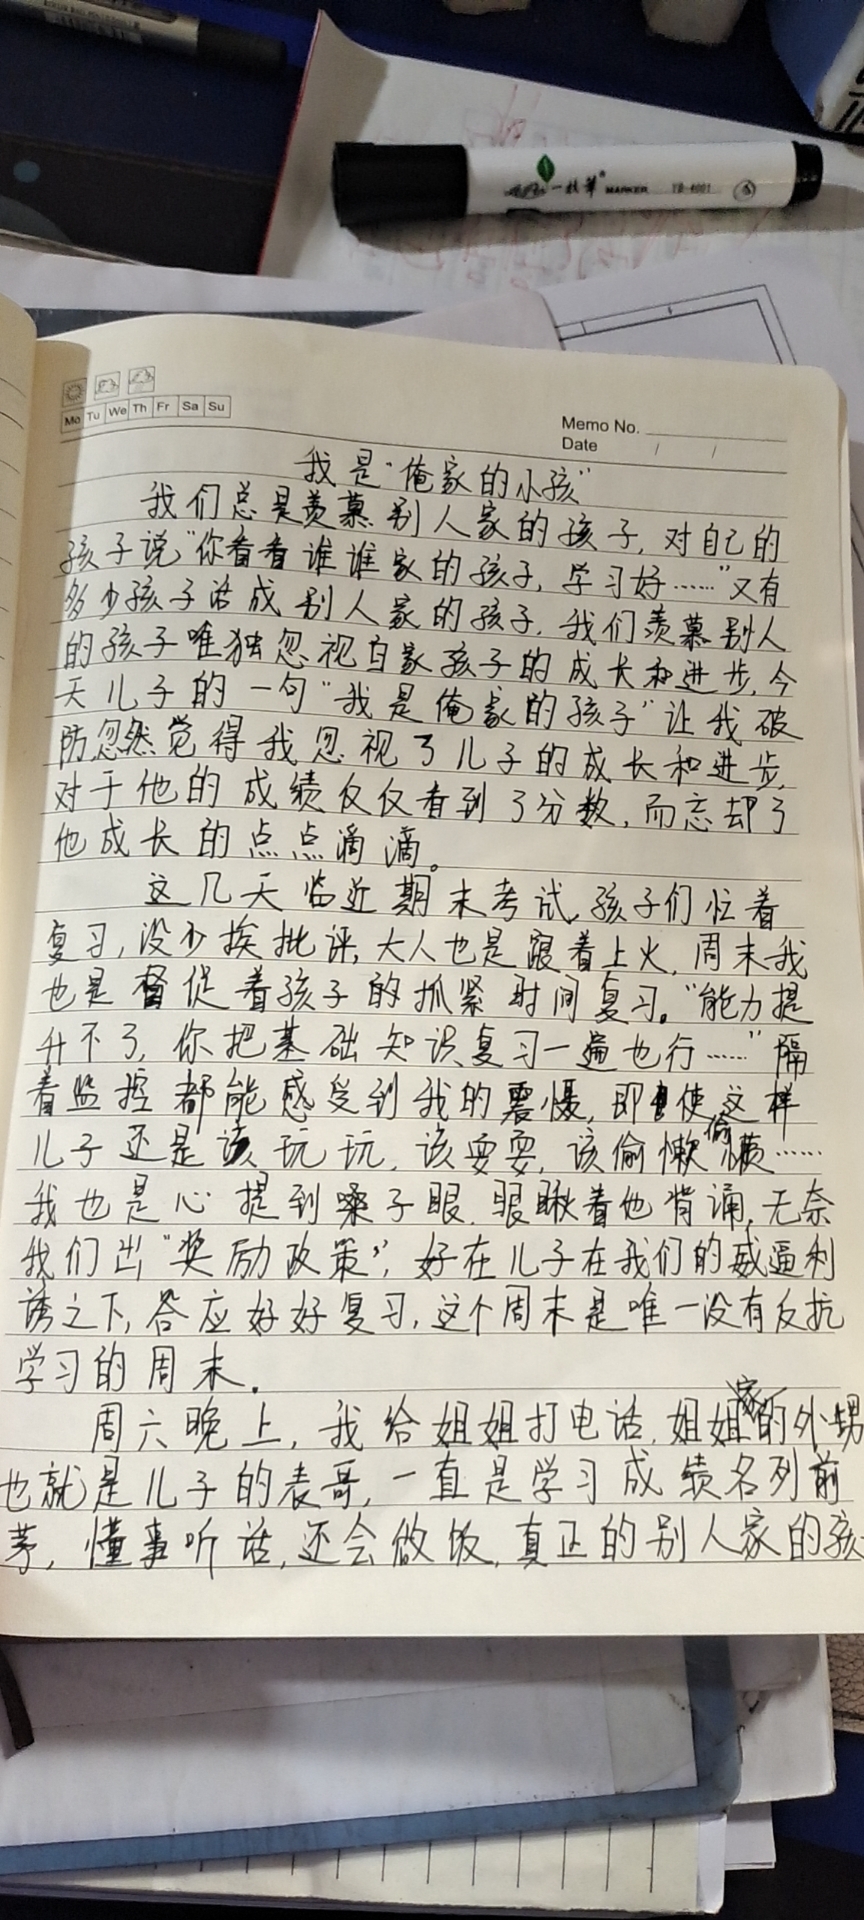 一枝笔 MARKER YB-4001
Mo Tu We Th Fr Sa Su
Memo No.
Date / /
我是“俺家的小孩”
我们总是羡慕别人家的孩子,对自己的
孩子说“你看看谁谁家的孩子,学习好……”又有
多少孩子活成别人家的孩子,我们羡慕别人
的孩子唯独忽视自家孩子的成长和进步,今
天儿子的一句“我是俺家的孩子”让我破
防忽然觉得我忽视了儿子的成长和进步,
对于他的成绩仅仅看到了分数,而忘却了
他成长的点点滴滴。
这几天临近期末考试,孩子们忙着
复习,没少挨批评,大人也是跟着上火,周末我
也是督促着孩子的抓紧时间复习。“能力提
升不了,你把基础知识复习一遍也行……”隔
着监控都能感受到我的震慑,即使这样
儿子还是该玩玩,该耍耍,该偷懒偷懒……
我也是心提到嗓子眼,狠瞅着他背诵,无奈
我们出“奖励政策”,好在儿子在我们的威逼利
诱之下,答应好好复习,这个周末是唯一没有反抗
学习的周末.
周六晚上,我给姐姐打电话,姐姐家的外甥
也就是儿子的表哥,一直是学习成绩名列前
茅,懂事听话,还会做饭,真正的别人家的孩